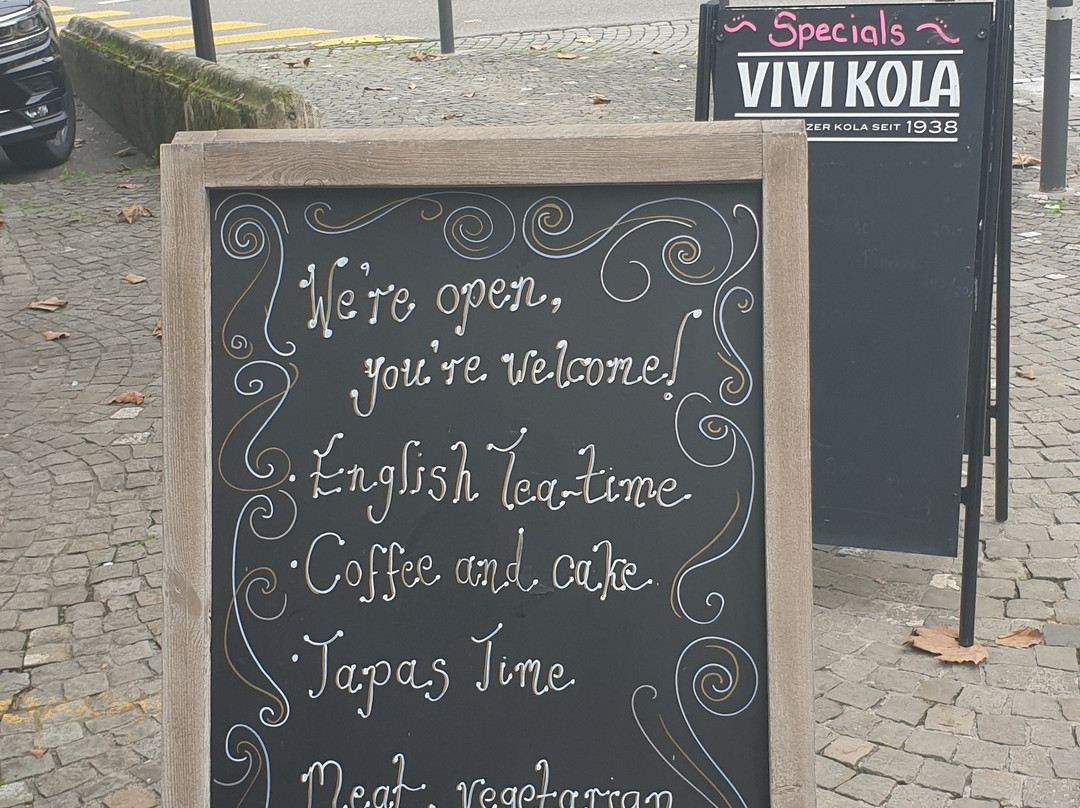 Specials
VIVI KOLA
ZER KOLA SEIT 1938
We're open,
you're welcome!
· English Tea-time
· Coffee and cake
· Tapas Time
Meat, vegetarian